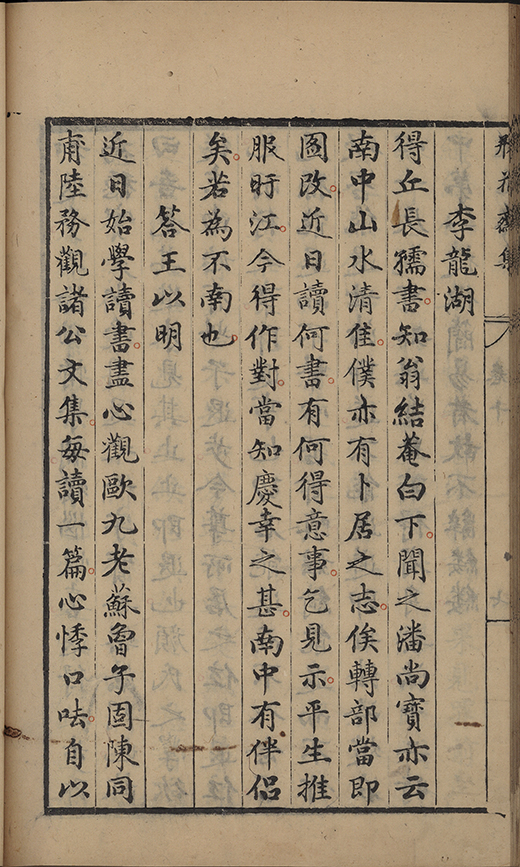 李龍湖
得丘長孺書知翁結菴白下聞之潘尚寶亦云
南中山水清佳僕亦有卜居之志俟轉部當即
圖改近日讀何書有何得意事乞見示平生推
服盱江今得作對當知慶幸之甚南中有伴侶
矣若為不南也
答王以明
近日始學讀書盡心觀歐九老蘇曾子固陳同
甫陸務觀諸公文集每讀一篇心悸口呿自以